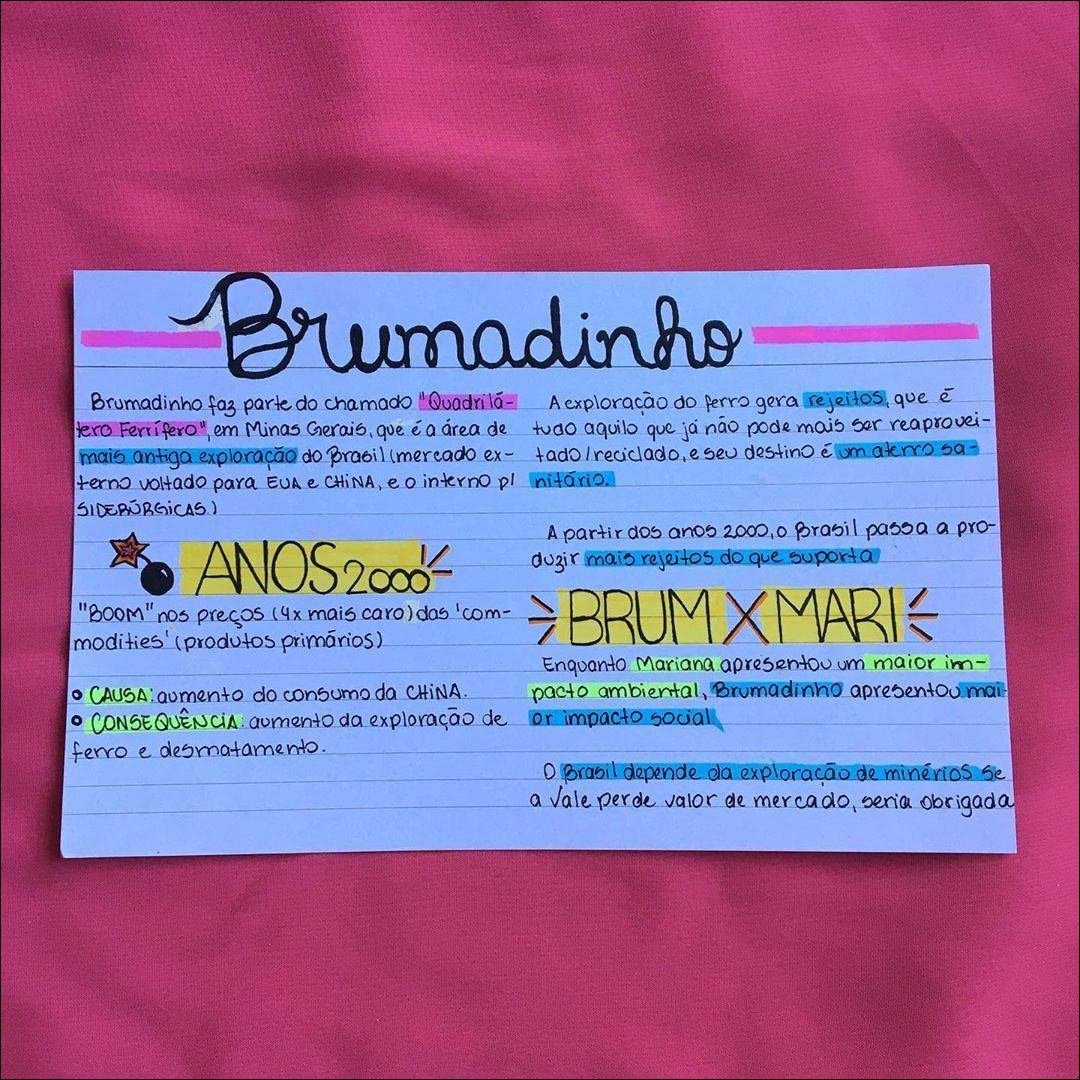 Brumadinho
Brumadinho faz parte do chamado "Quadrilá-
tero Ferrífero", em Minas Gerais, que é a área de
mais antiga exploração do Brasil (mercado ex-
terno voltado para EUA e CHINA, e o interno p/
SIDERÚRGICAS.)
ANOS 2000
"BOOM" nos preços (4x mais caro) das 'com-
modities' (produtos primários)
CAUSA: aumento do consumo da CHINA.
CONSEQUÊNCIA: aumento da exploração de
ferro e desmatamento.
A exploração do ferro gera rejeitos, que é
tudo aquilo que já não pode mais ser reaprovei-
tado/reciclado, e seu destino é um aterro sa-
nitário.
A partir dos anos 2000, o Brasil passa a pro-
duzir mais rejeitos do que suporta
BRUM X MARI
Enquanto Mariana apresentou um maior im-
pacto ambiental, Brumadinho apresentou mai
or impacto social
O Brasil depende da exploração de minérios se
a Vale perde valor de mercado, seria obrigada